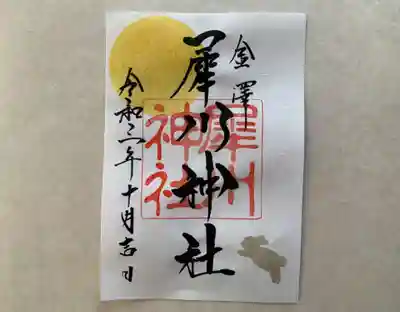 金澤
犀川神社
犀川
神社
令和二年十月吉日